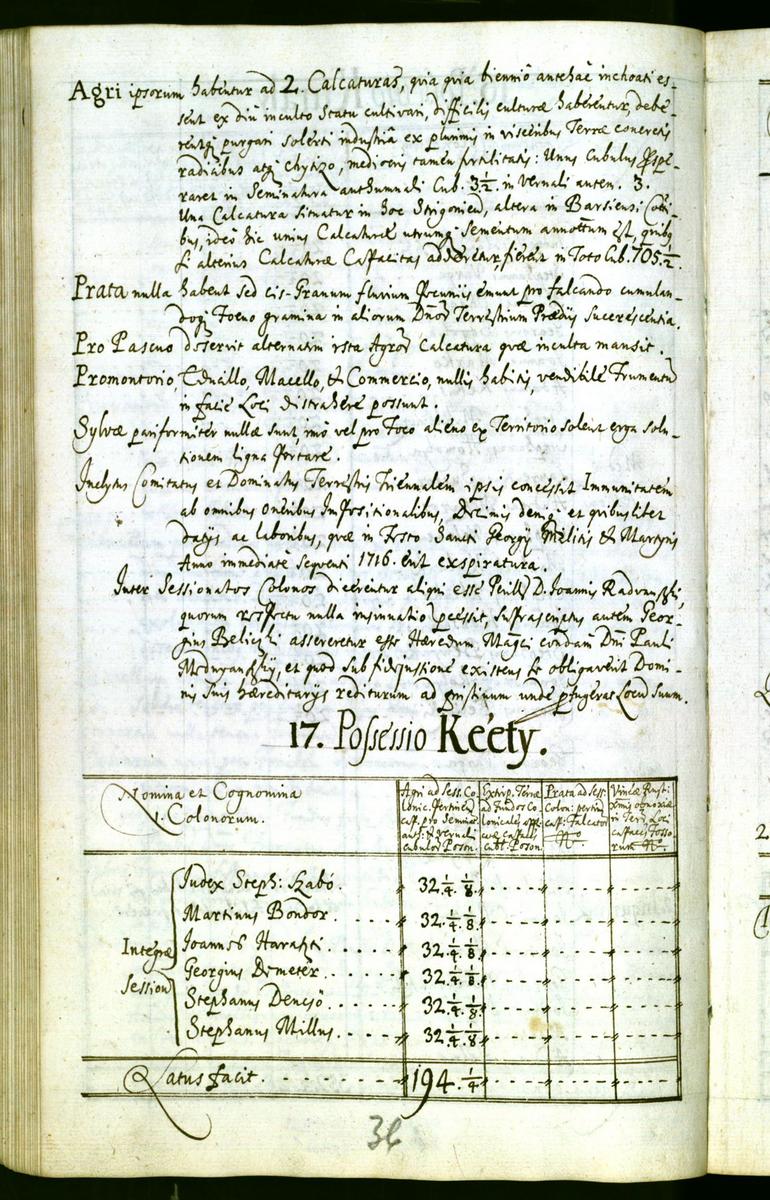 Agri ipsorum habentur ad 2. Calcaturas, quia quia biennio antehac inchoati es-
sent ex diu inculto Statu cultivari, difficilis culturæ haberentur, debe-
rentq; purgari solerti industria ex plurimis in visceribus Terræ concretis
radicibus atq; chytizo, mediocris tamen fertilitatis: Unus Cubulus
raret in Seminatura authumnali Cub. 3 1/2. in Vernali autem. 3.
Una Calcatura situatur in hoc Strigonien, altera in Barsiensi Co[mi]tti-
bus, ideo hic unius Calcaturæ utrumq; Sementum annottum est, quibus
si alterius Calcaturæ Capacitas adderetur, fierent in Toto Cub. 705. 1/2.
Prata nulla habent sed cis-Granum fluvium Pecuniis emunt pro falcando cumulan-
doq; foeno gramina in aliorum Dnor Terrestrium Prædiis Sucrescentia.
Pro Pascuo deservit alternatim ista Agror Calcatura quæ inculta mansit.
Promontorio, Educillo, Macello, & Commercio, nullis habitis, vendibile Frumentu
in facie Loci distrahere possunt.
Sylvæ pariformiter nullæ sunt, imò vel pro Foco alieno ex Territorio solent erga solu-
tionem ligna Portare.
Inclytus Comitatus et Dominatus Terrestris Triennalem ipsis concessit Immunitatem
ab omnibus Oneribus Impositionalibus, Decimis deniq; et quibuslibet
datys ac laboribus, quæ in Festo Sancti Georgy Militis & Martyris
Anno immediatè Sequenti 1716. erit exspiratura.
Inter Sessionatos Colonos dicerentur aliqui esse Perill. D. Joannis Radvanszki,
quorum respectu nulla insinuatio pcessit, Suprascriptus autem Geor-
gius Beliczki assereretur esse Hæredum Magci condam Dni Pauli
Mednyanszky, et quod sub fidejussione existens se obligaverit Domi-
nis suis hæreditarys rediturum ad pristinum unde pfugerat Locu Suum.
17. Possessio Keéty.
Nomina et Cognomina
Colonorum.
Agri ad Sess. Co
lonic. Pertinen
cap. pro Semina
aut: & vernali
cubulor Poson.
Extirp. Terræ
ad Fundos Co
lonicales appli
catæ capaces
cubl. Poson.
Prata ad Sess.
Colon: pertin
cap: Falcator
No
Vineæ
in Terr. Loci
capaces Fosso
rum No
Integræ
Session
Judex Steph: Szabó. 32. 1/4. 1/8.
Martinus Bondor. 32. 1/4. 1/8
Joannes Haraszti. 32. 1/4. 1/8
Georgius Demeter. 32. 1/4. 1/8
Stephanus Dencsö. 32. 1/4. 1/8.
Stephanus Millus. 32. 1/4. 1/8
Latus facit. 194. 1/4
36